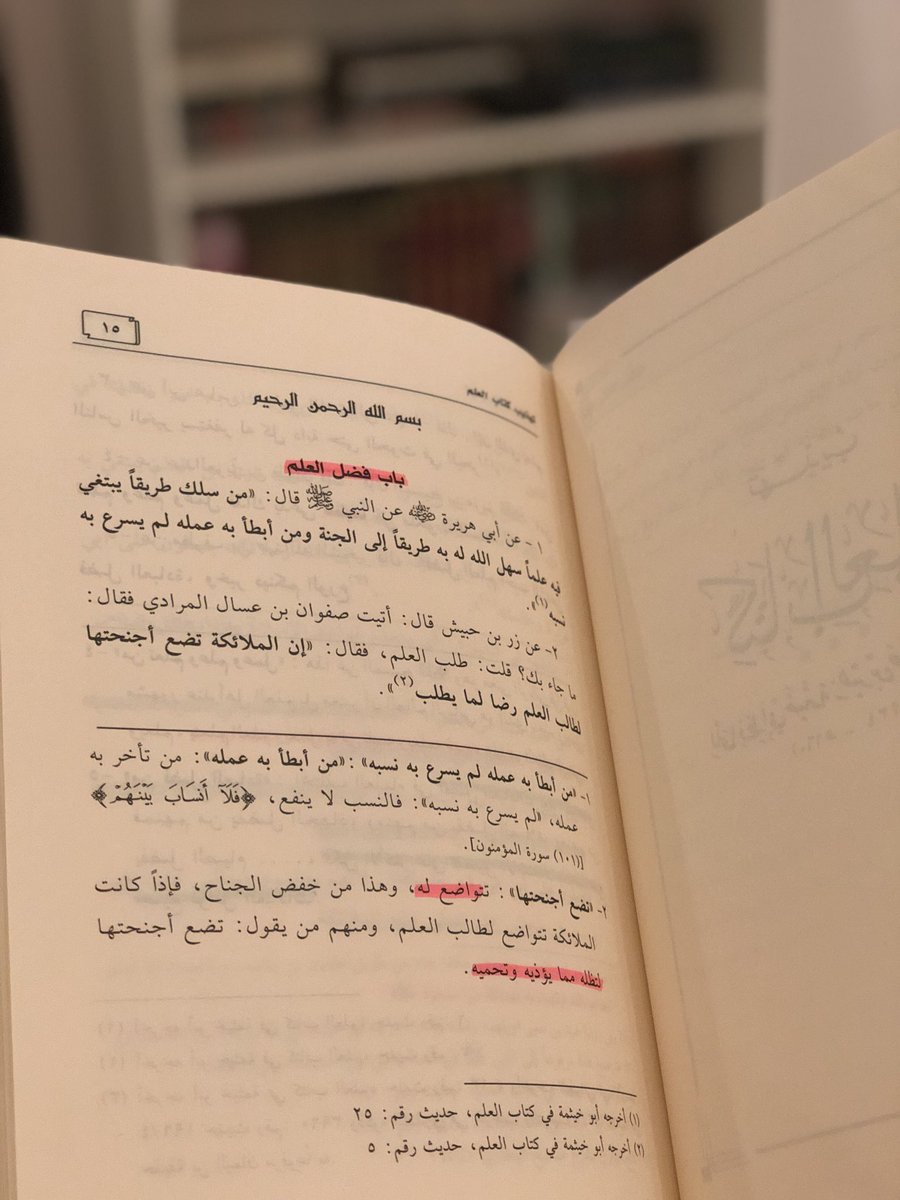 ١٥
تهذيب كتاب العلم
بسم الله الرحمن الرحيم
باب فضل العلم
١- عن أبي هريرة رضي الله عنه عن النبي ﷺ قال: «من سلك طريقاً يبتغي
فيه علماً سهل الله له به طريقاً إلى الجنة ومن أبطأ به عمله لم يسرع به
نسبه(١)».
٢- عن زر بن حبيش قال: أتيت صفوان بن عسال المرادي فقال:
ما جاء بك؟ قلت: طلب العلم، فقال: «إن الملائكة تضع أجنحتها
لطالب العلم رضا لما يطلب(٢)».
١- «من أبطأ به عمله لم يسرع به نسبه»: «من أبطأ به عمله»: من تأخر به
عمله، «لم يسرع به نسبه»: فالنسب لا ينفع، ﴿فَلَآ أَنسَابَ بَيْنَهُمْ﴾
[(١٠١) سورة المؤمنون].
٢- «تضع أجنحتها»: تتواضع له، وهذا من خفض الجناح، فإذاً كانت
الملائكة تتواضع لطالب العلم، ومنهم من يقول: تضع أجنحتها
لتظله مما يؤذيه وتحميه.
(١) أخرجه أبو خيثمة في كتاب العلم، حديث رقم: ٢٥
(٢) أخرجه أبو خيثمة في كتاب العلم، حديث رقم: ٥